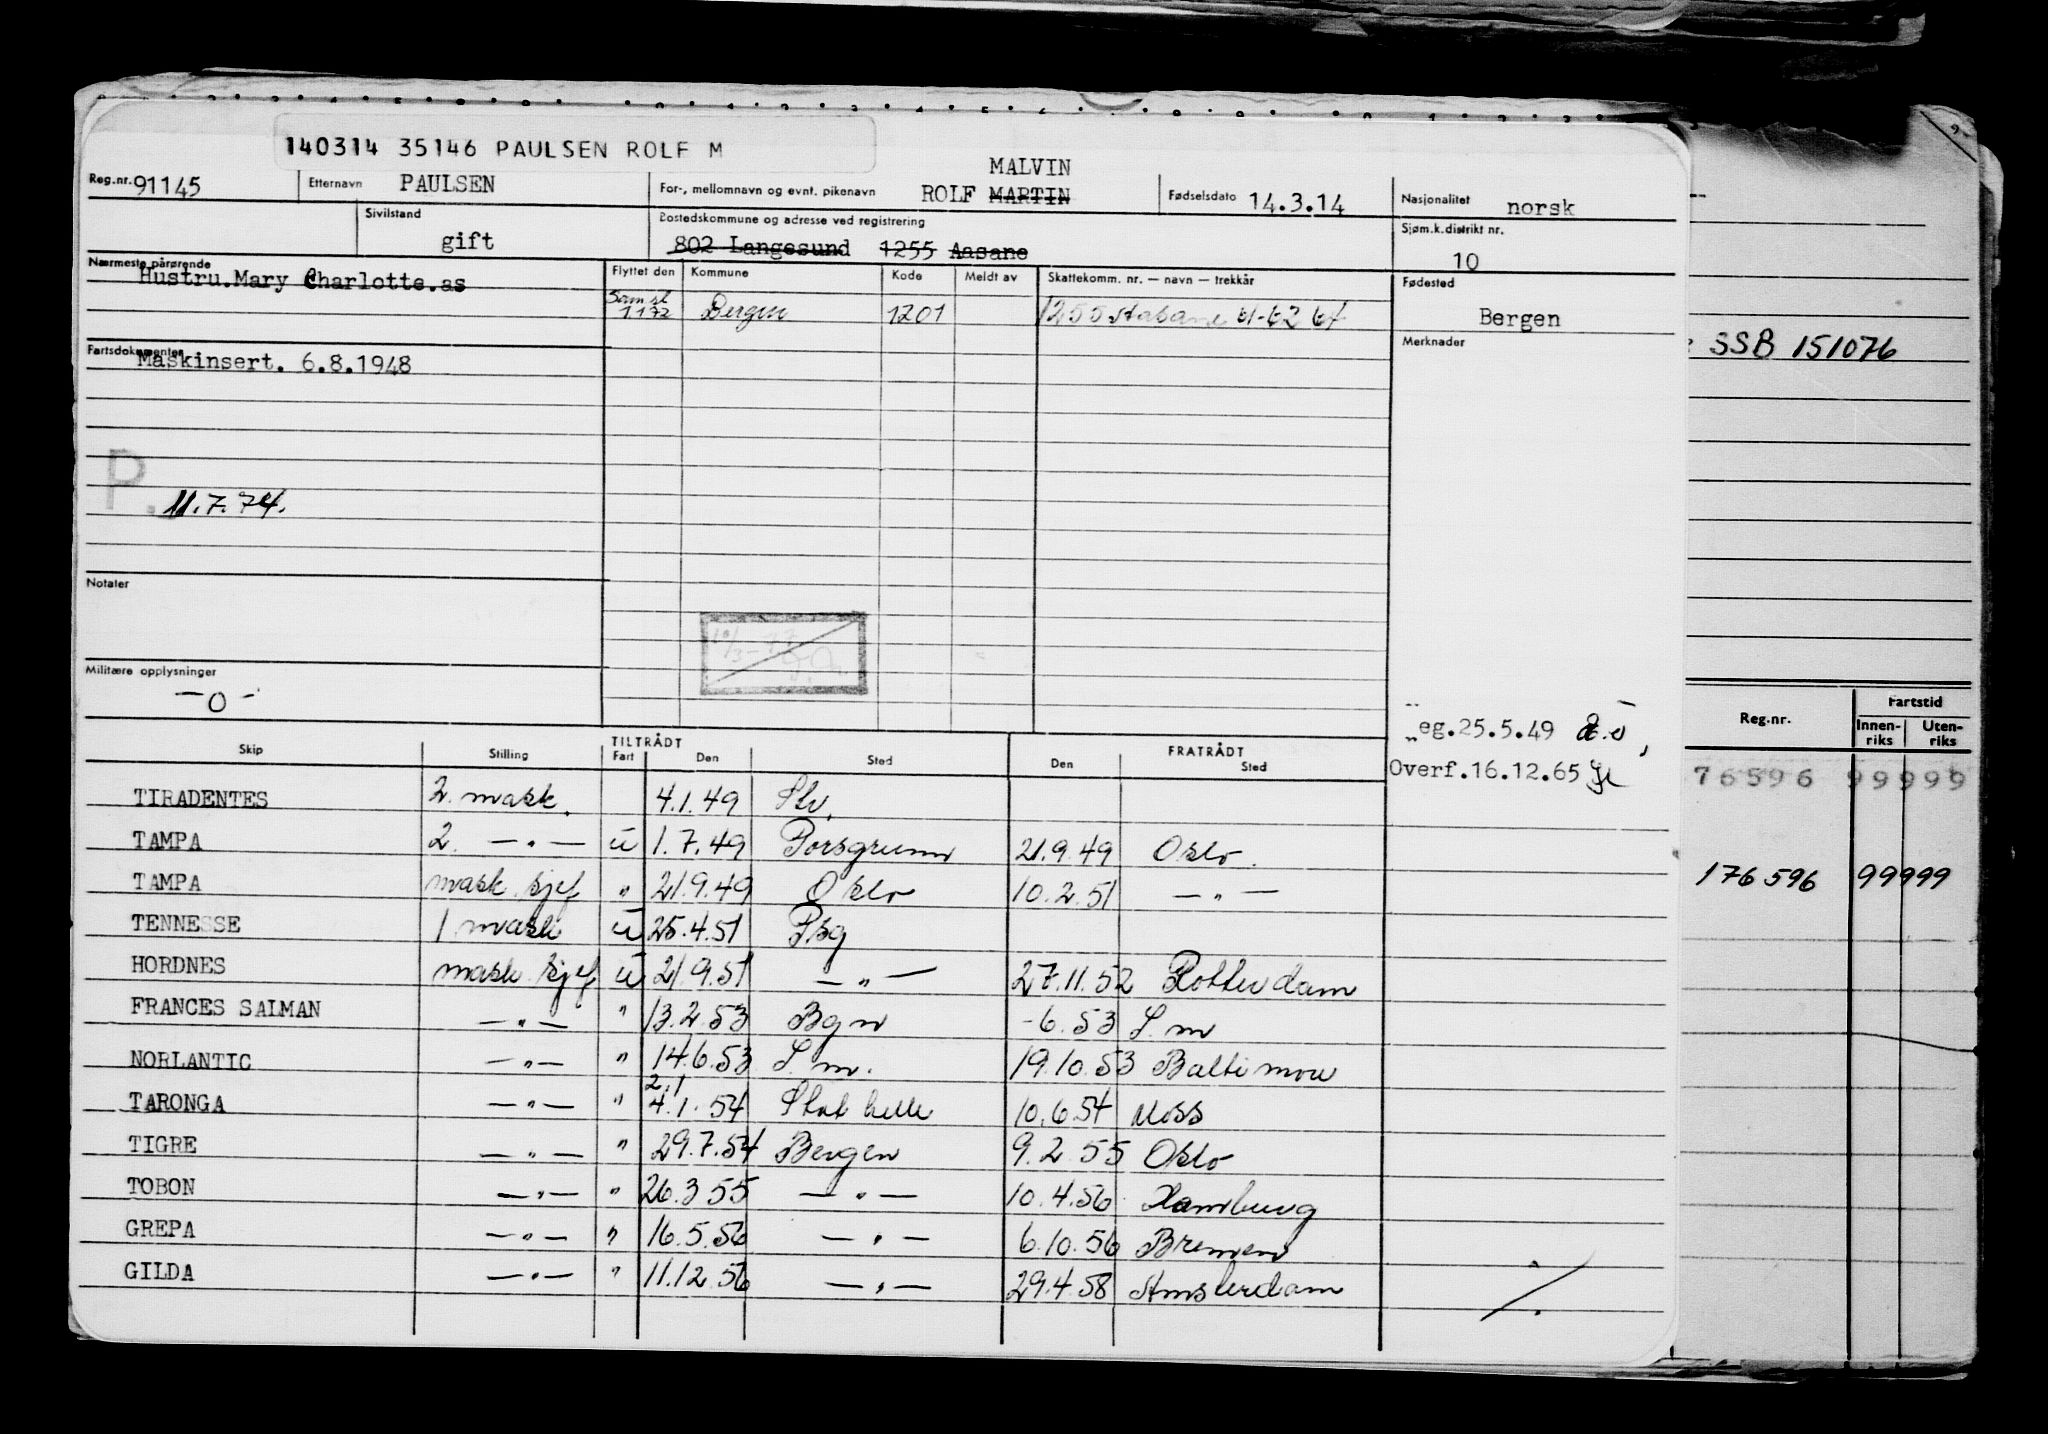 140314 35146 PAULSEN ROLF M
Reg.nr. 91145 Etternavn PAULSEN For-, mellomnavn og evnt. pikenavn ROLF MARTIN MALVIN Fødselsdato 14.3.14 Nasjonalitet norsk
Sivilstand gift Bostedskommune og adresse ved registrering 802 Langesund 1255 Aasane Sjøm.k.distrikt nr. 10
Nærmeste pårørende Hustru.Mary Charlotte.as
Flyttet den Kommune Kode Meldt av Skattekomm. nr. — navn — trekkår Fødested
1172 Bergen 1201 1255 Bergen
Fartsdokumenter Maskinsert. 6.8.1948 Merknader
SSB 151076
P.
11.7.74.
Notater
Militære opplysninger
-0-
Reg.nr. Fartstid
Innen-riks Uten-riks
eg.25.5.49
Overf.16.12.65
76596 99999
176596 99999
TILTRÅDT FRATRÅDT
Skip Stilling Fart Den Sted Den Sted
TIRADENTES 2. mask. 4.1.49
TAMPA 2. — " — u 1.7.49 Porsgrunn 21.9.49 Oslo.
TAMPA mask. kjef " 21.9.49 Oslo 10.2.51 — " —
TENNESSE 1 mask u 25.4.51 Psg
HORDNES mask kjef u 21.9.51 — " — 27.11.52 Rotterdam
FRANCES SALMAN — " — " 13.2.53 Bgn -6.53 S.m
NORLANTIC — " — " 14.6.53 S.m. 19.10.53 Baltimore
TARONGA — " — " 4.1.54 2.1 Stathelle 10.6.54 Moss
TIGRE — " — " 29.7.54 Bergen 9.2.55 Oslo
TOBON — " — " 26.3.55 — " — 10.4.56 Hamburg
GREPA — " — " 16.5.56 — " — 6.10.56 Bremen
GILDA — " — " 11.12.56 — " — 29.4.58 Amsterdam